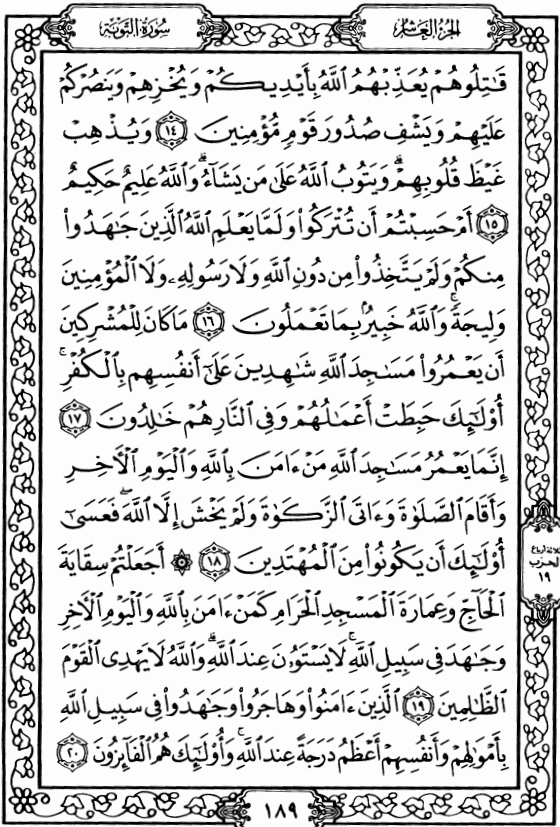 الجزء العاشر
سورة التوبة
قَـٰتِلُوهُمْ يُعَذِّبْهُمُ ٱللَّهُ بِأَيْدِيكُمْ وَيُخْزِهِمْ وَيَنصُرْكُمْ
عَلَيْهِمْ وَيَشْفِ صُدُورَ قَوْمٍ مُّؤْمِنِينَ ١٤ وَيُذْهِبْ
غَيْظَ قُلُوبِهِمْ ۗ وَيَتُوبُ ٱللَّهُ عَلَىٰ مَن يَشَآءُ ۗ وَٱللَّهُ عَلِيمٌ حَكِيمٌ
١٥ أَمْ حَسِبْتُمْ أَن تُتْرَكُوا۟ وَلَمَّا يَعْلَمِ ٱللَّهُ ٱلَّذِينَ جَـٰهَدُوا۟
مِنكُمْ وَلَمْ يَتَّخِذُوا۟ مِن دُونِ ٱللَّهِ وَلَا رَسُولِهِۦ وَلَا ٱلْمُؤْمِنِينَ
وَلِيجَةً ۚ وَٱللَّهُ خَبِيرٌۢ بِمَا تَعْمَلُونَ ١٦ مَا كَانَ لِلْمُشْرِكِينَ
أَن يَعْمُرُوا۟ مَسَـٰجِدَ ٱللَّهِ شَـٰهِدِينَ عَلَىٰٓ أَنفُسِهِم بِٱلْكُفْرِ ۚ
أُو۟لَـٰٓئِكَ حَبِطَتْ أَعْمَـٰلُهُمْ وَفِى ٱلنَّارِ هُمْ خَـٰلِدُونَ ١٧
إِنَّمَا يَعْمُرُ مَسَـٰجِدَ ٱللَّهِ مَنْ ءَامَنَ بِٱللَّهِ وَٱلْيَوْمِ ٱلْـَٔاخِرِ
وَأَقَامَ ٱلصَّلَوٰةَ وَءَاتَى ٱلزَّكَوٰةَ وَلَمْ يَخْشَ إِلَّا ٱللَّهَ ۖ فَعَسَىٰٓ
أُو۟لَـٰٓئِكَ أَن يَكُونُوا۟ مِنَ ٱلْمُهْتَدِينَ ١٨ ۞ أَجَعَلْتُمْ سِقَايَةَ
ٱلْحَآجِّ وَعِمَارَةَ ٱلْمَسْجِدِ ٱلْحَرَامِ كَمَنْ ءَامَنَ بِٱللَّهِ وَٱلْيَوْمِ ٱلْـَٔاخِرِ
وَجَـٰهَدَ فِى سَبِيلِ ٱللَّهِ ۚ لَا يَسْتَوُۥنَ عِندَ ٱللَّهِ ۗ وَٱللَّهُ لَا يَهْدِى ٱلْقَوْمَ
ٱلظَّـٰلِمِينَ ١٩ ٱلَّذِينَ ءَامَنُوا۟ وَهَاجَرُوا۟ وَجَـٰهَدُوا۟ فِى سَبِيلِ ٱللَّهِ
بِأَمْوَٰلِهِمْ وَأَنفُسِهِمْ أَعْظَمُ دَرَجَةً عِندَ ٱللَّهِ ۚ وَأُو۟لَـٰٓئِكَ هُمُ ٱلْفَآئِزُونَ ٢٠
ثلاثة أرباع
الحزب
١٩
١٨٩